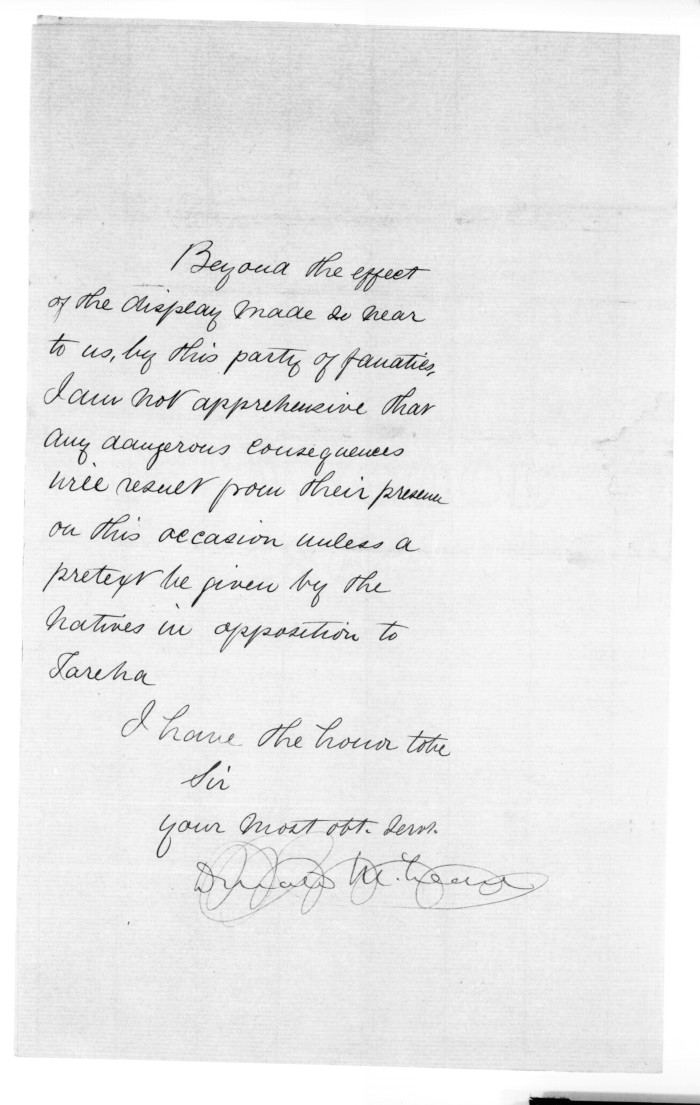 Beyond the effect
of the display made so near
to us, by this party of fanatics,
I am not apprehensive that
any dangerous consequences
will result from their presence
on this occasion unless a
pretext be given by the
Natives in opposition to
Tareha
I have the honor to be
Sir
your most obt. Servt.
Donald McLean